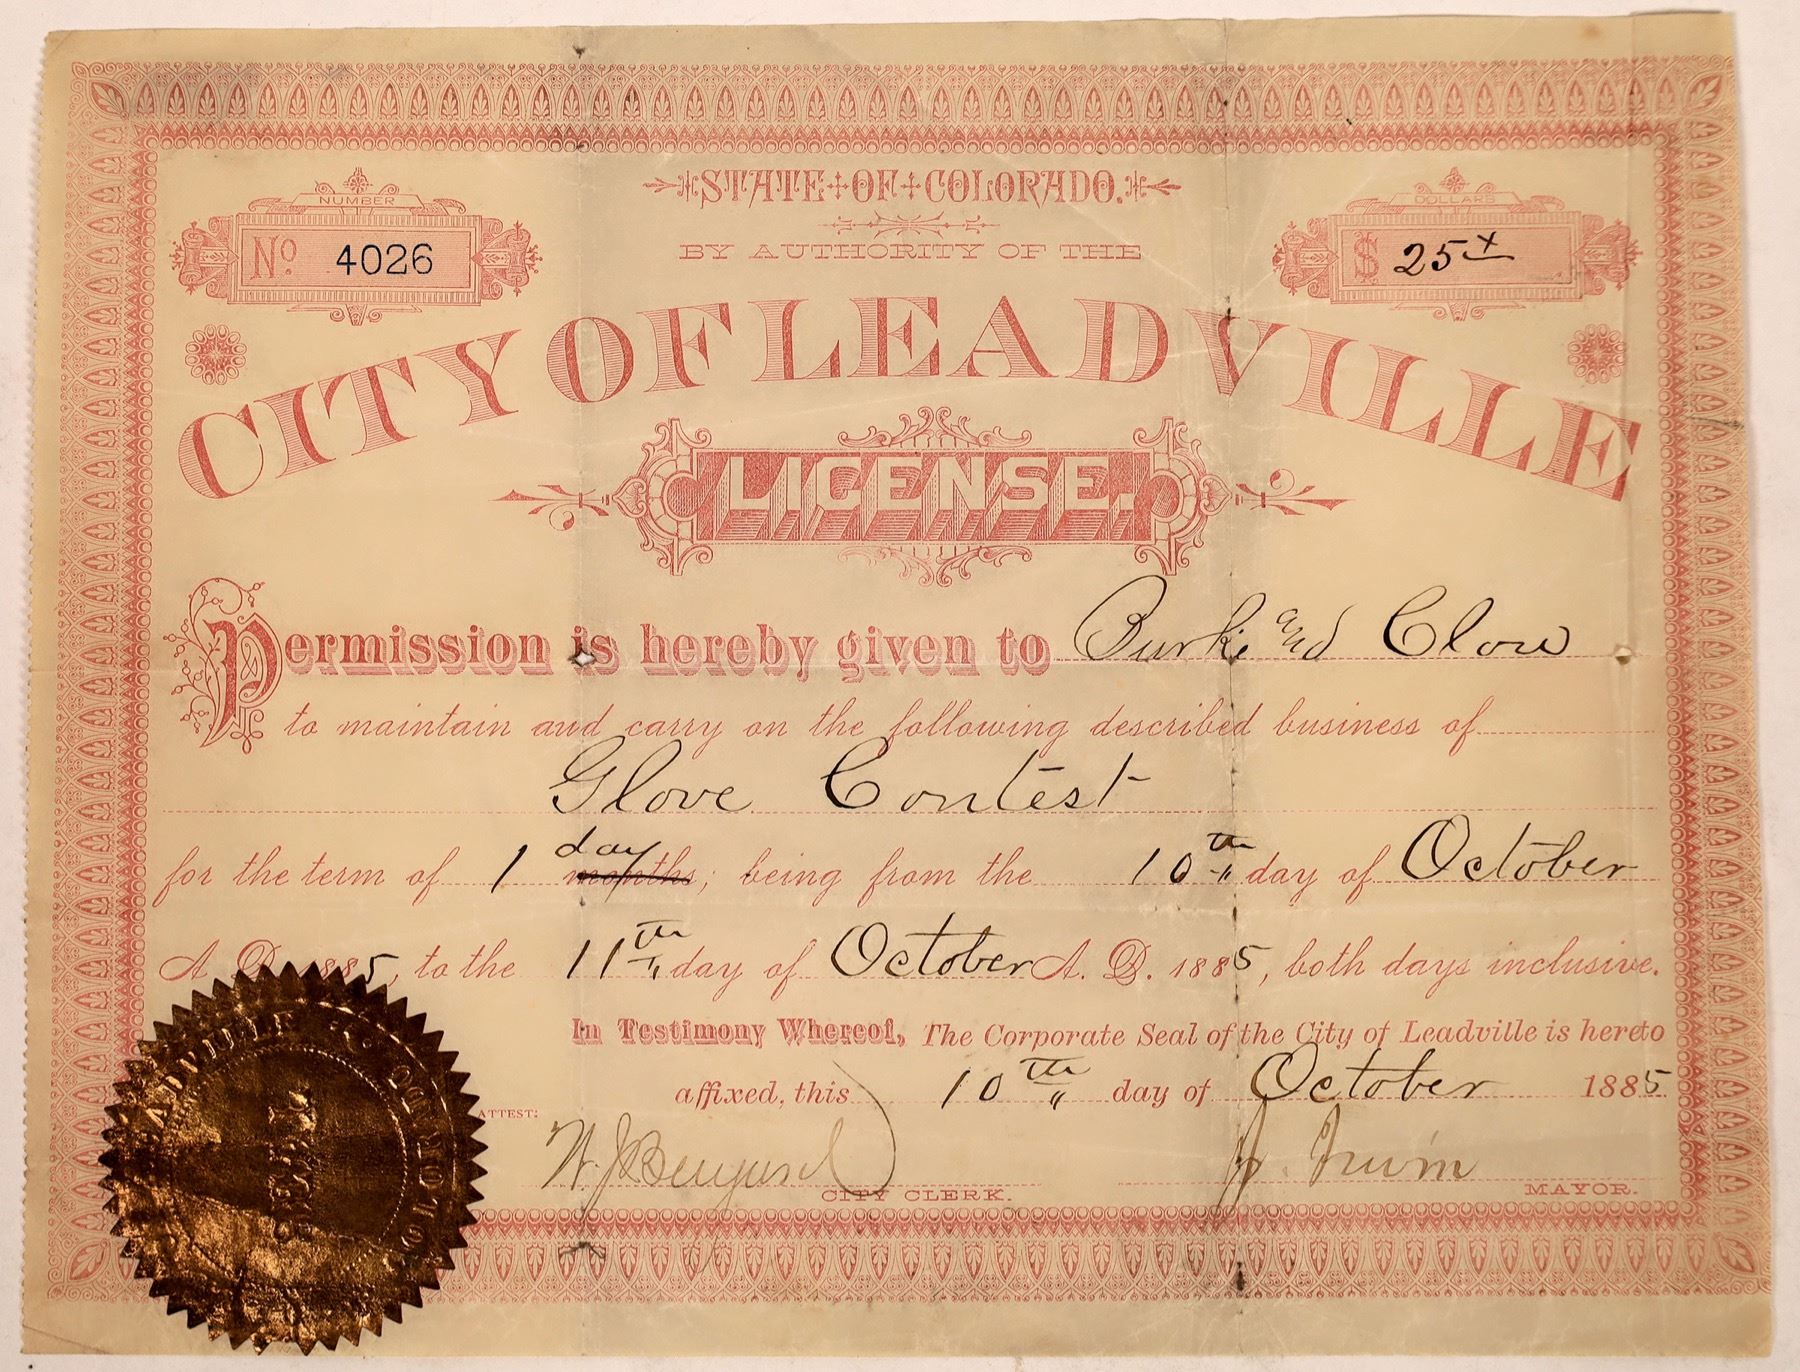 STATE OF COLORADO.
NUMBER
No. 4026
DOLLARS
$ 25 x
BY AUTHORITY OF THE
CITY OF LEADVILLE
LICENSE.
Permission is hereby given to Burke and Clow
to maintain and carry on the following described business of
Glove Contest
day
for the term of 1 months; being from the 10th day of October
A.D. 1885, to the 11th day of October A.D. 1885, both days inclusive.
In Testimony Whereof, The Corporate Seal of the City of Leadville is hereto
affixed, this 10th day of October 1885
ATTEST:
CITY CLERK.
J. Irwin MAYOR.
LEADVILLE COLORADO
SEAL.